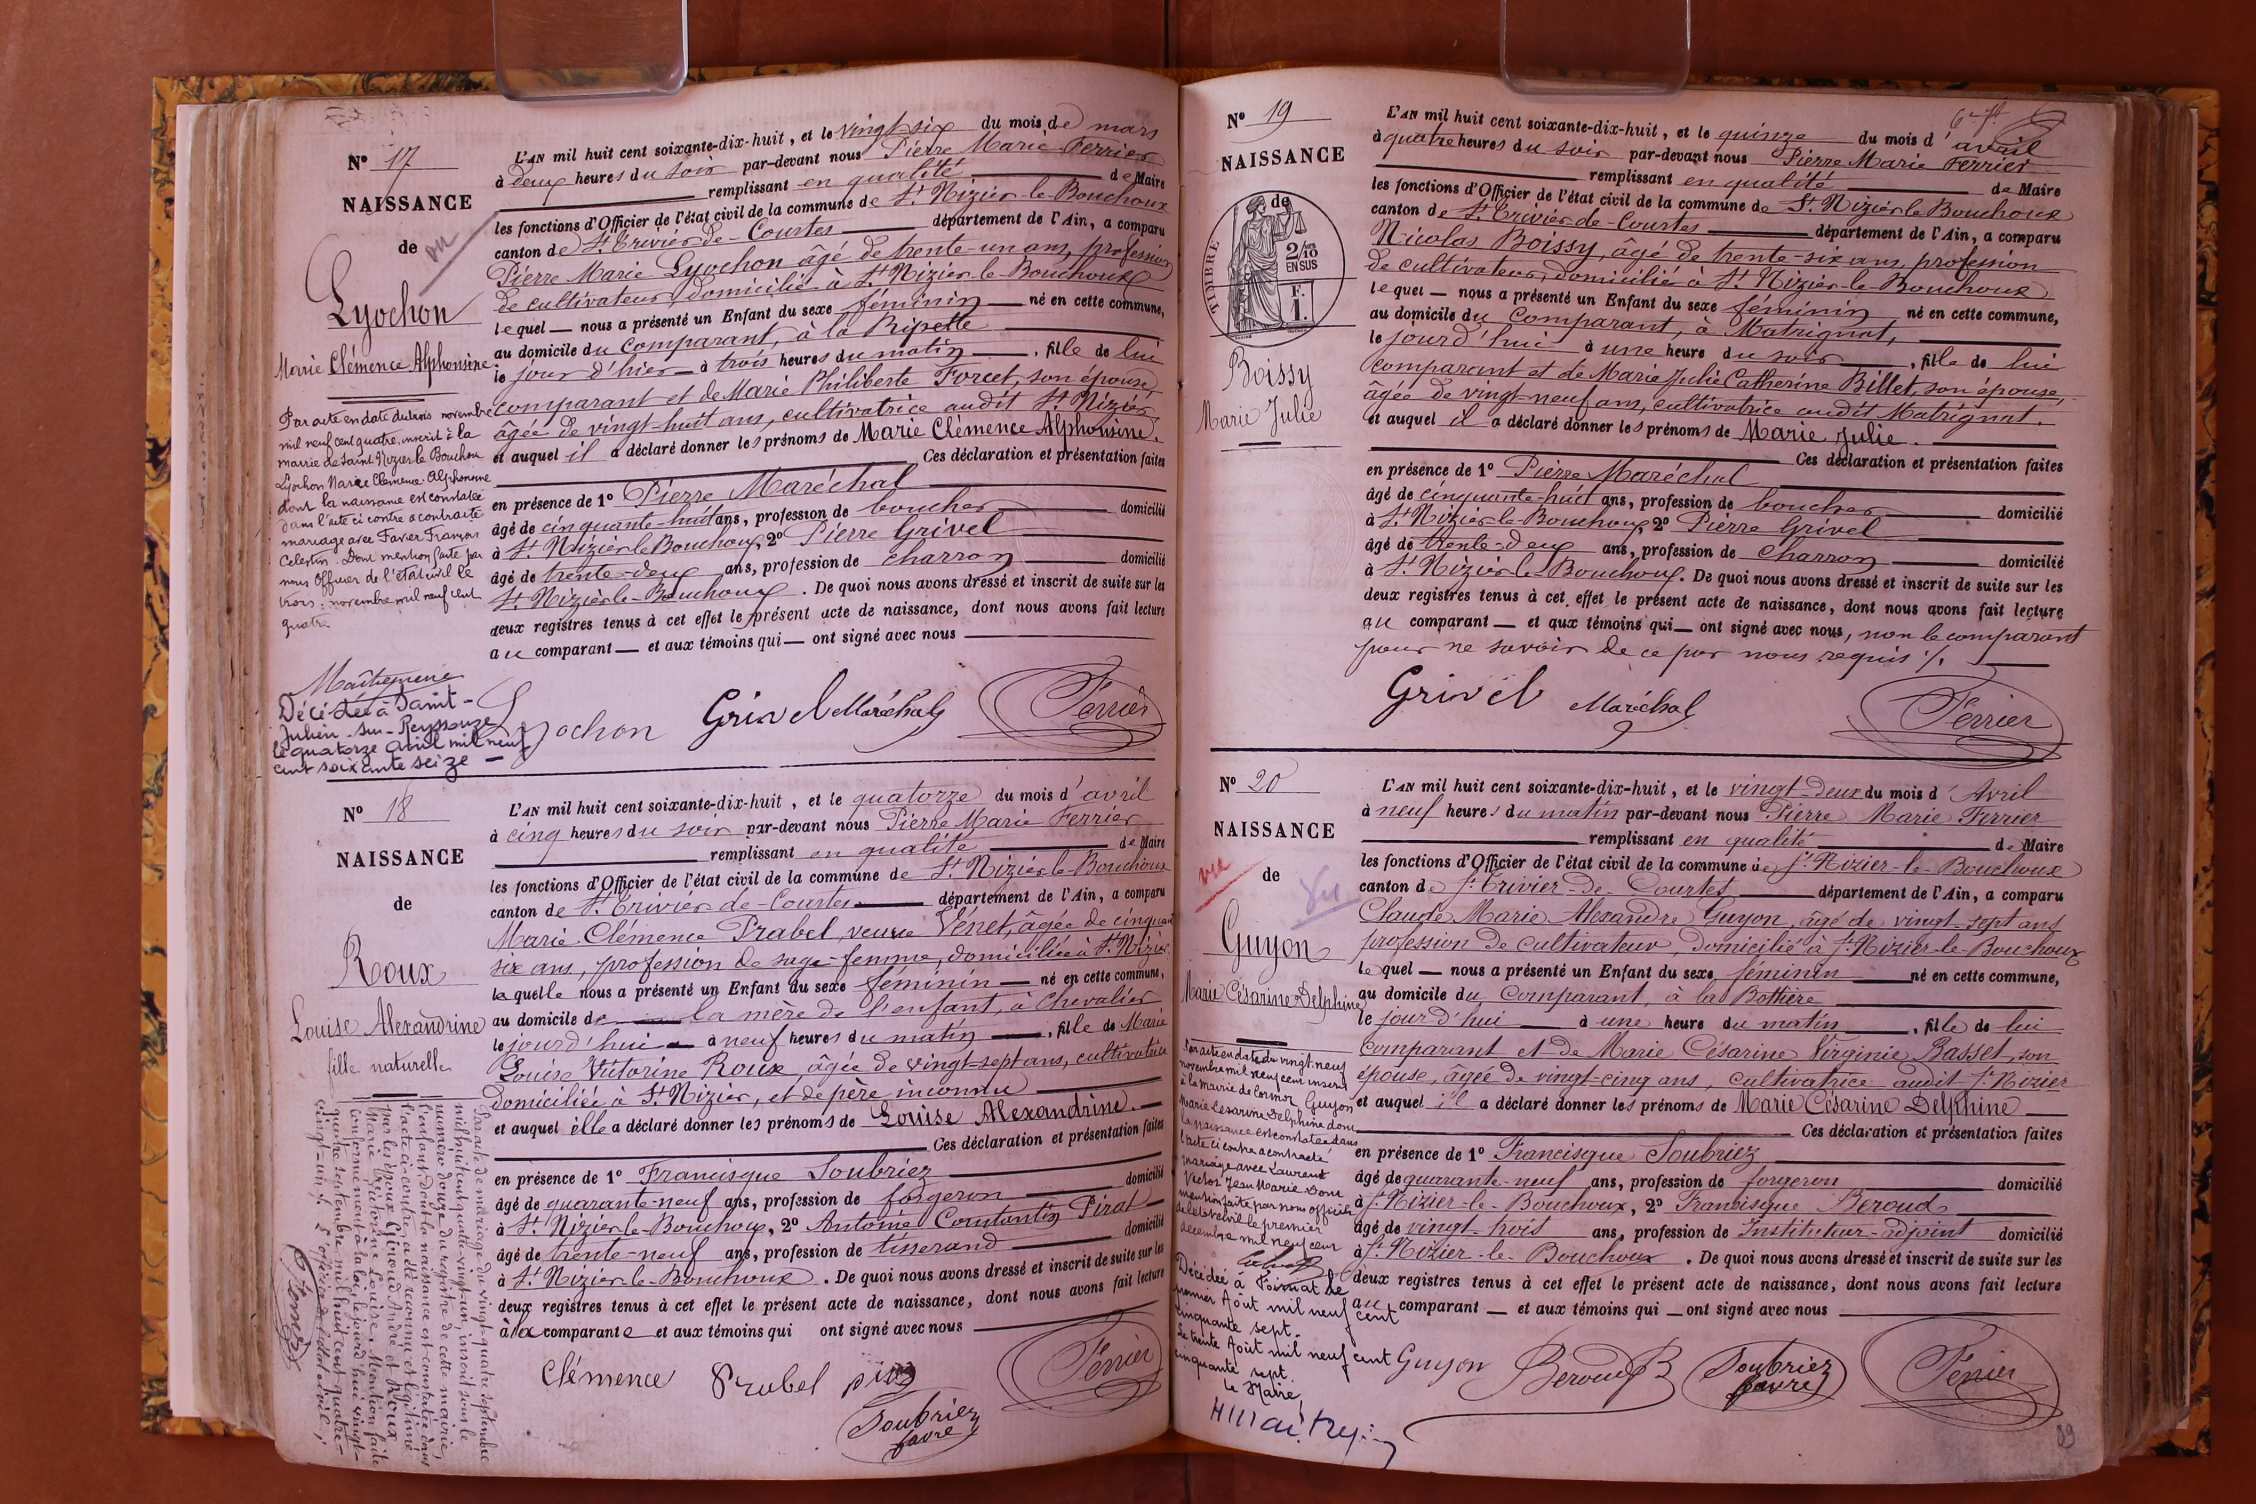 N° 17
NAISSANCE
de
vu
Lyochon
Marie Clémence Alphonsine
Par acte en date du trois novembre
mil neuf cent quatre, inscrit à la
mairie de Saint Nizier le Bouchoux
Lyochon Marie Clémence Alphonsine
dont la naissance est constatée
dans l'acte ci contre a contracté
mariage avec Favier François
Celestin. Dont mention faite par
nous Officier de l'état civil le
trois novembre mil neuf cent
quatre
Décédée à Saint-
Julien-sur-Reyssouze
le quatorze avril mil neuf
cent soixante seize —
L'AN mil huit cent soixante-dix-huit, et le vingt six du mois de mars
à deux heures du soir par-devant nous Pierre Marie Ferrier
remplissant en qualité de Maire
les fonctions d'Officier de l'état civil de la commune de St Nizier-le-Bouchoux
canton de St Trivier-de-Courtes département de l'Ain, a comparu
Pierre Marie Lyochon âgé de trente-un ans, profession
de cultivateur, domicilié à St Nizier-le-Bouchoux
lequel — nous a présenté un Enfant du sexe féminin — né en cette commune,
au domicile du comparant, à la Ripette
le jour d'hier — à trois heures du matin —, fille de lui
comparant et de Marie Philiberte Forcet, son épouse,
âgée de vingt-huit ans, cultivatrice audit St Nizier
et auquel il a déclaré donner les prénoms de Marie Clémence Alphonsine.
Ces déclaration et présentation faites
en présence de 1° Pierre Maréchal
âgé de cinquante-huit ans, profession de boucher domicilié
à St Nizier-le-Bouchoux, 2° Pierre Grivel
âgé de trente-deux ans, profession de charron domicilié
à St Nizier-le-Bouchoux. De quoi nous avons dressé et inscrit de suite sur les
deux registres tenus à cet effet le présent acte de naissance, dont nous avons fait lecture
au comparant — et aux témoins qui — ont signé avec nous
Lyochon Grivel Maréchal Ferrier
N° 18
NAISSANCE
de
Roux
Louise Alexandrine
fille naturelle
Par acte de mariage du vingt-quatre septembre
mil huit cent quatre-vingt-un, inscrit sous le
numéro douze du registre de cette mairie,
l'enfant dont la naissance est constatée dans
l'acte ci-contre, a été reconnue et légitimée
par les époux Giroud André et Roux
Marie Victorine Louise. Mention faite
conformément à la loi, le jourd'hui vingt-
quatre septembre mil huit cent quatre-
vingt-un. L'officier de l'état civil,
L'AN mil huit cent soixante-dix-huit, et le quatorze du mois d'avril
à cinq heures du soir par-devant nous Pierre Marie Ferrier
remplissant en qualité de Maire
les fonctions d'Officier de l'état civil de la commune de St Nizier-le-Bouchoux
canton de St Trivier-de-Courtes département de l'Ain, a comparu
Marie Clémence Prabel, veuve Vénet, âgée de cinquante
six ans, profession de sage-femme, domiciliée à St Nizier
laquelle nous a présenté un Enfant du sexe féminin — né en cette commune,
au domicile de la mère de l'enfant, à Chevalier
le jourd'hui — à neuf heures du matin —, fille de Marie
Louise Victorine Roux, âgée de vingt-sept ans, cultivatrice
domiciliée à St Nizier, et de père inconnu
et auquel elle a déclaré donner les prénoms de Louise Alexandrine.
Ces déclaration et présentation faites
en présence de 1° Francisque Soubriez
âgé de quarante-neuf ans, profession de forgeron domicilié
à St Nizier-le-Bouchoux, 2° Antoine Constantin Pirat
âgé de trente-neuf ans, profession de tisserand domicilié
à St Nizier-le-Bouchoux. De quoi nous avons dressé et inscrit de suite sur les
deux registres tenus à cet effet le présent acte de naissance, dont nous avons fait lecture
à la comparante et aux témoins qui ont signé avec nous
Clémence Prabel Ferrier
Soubriez
favre
N° 19
NAISSANCE
de
TIMBRE
2/10
EN SUS
F.
1.
Boissy
Marie Julie
L'AN mil huit cent soixante-dix-huit, et le quinze du mois d'avril
à quatre heures du soir par-devant nous Pierre Marie Ferrier
remplissant en qualité de Maire
les fonctions d'Officier de l'état civil de la commune de St Nizier le Bouchoux
canton de St Trivier-de-Courtes département de l'Ain, a comparu
Nicolas Boissy, âgé de trente-six ans, profession
de cultivateur, domicilié à St Nizier-le-Bouchoux
lequel — nous a présenté un Enfant du sexe féminin né en cette commune,
au domicile du comparant, à Matrignat,
le jourd'hui à une heure du soir, fille de lui
comparant et de Marie Julie Catherine Billet, son épouse,
âgée de vingt-neuf ans, cultivatrice audit Matrignat.
et auquel il a déclaré donner les prénoms de Marie Julie.
Ces déclaration et présentation faites
en présence de 1° Pierre Maréchal
âgé de cinquante-huit ans, profession de boucher domicilié
à St Nizier-le-Bouchoux, 2° Pierre Grivel
âgé de trente-deux ans, profession de charron domicilié
à St Nizier-le-Bouchoux. De quoi nous avons dressé et inscrit de suite sur les
deux registres tenus à cet effet le présent acte de naissance, dont nous avons fait lecture
au comparant — et aux témoins qui — ont signé avec nous, non le comparant
pour ne savoir de ce par nous requis ./.
Grivel Maréchal Ferrier
N° 20
NAISSANCE
de
vu
vu
Guyon
Marie Césarine Delphine
Par acte en date du vingt-neuf
novembre mil neuf cent inséré
à la mairie de Cormoz Guyon
Marie Césarine Delphine dont
la naissance est constatée dans
l'acte ci contre a contracté
mariage avec Laurent
Victor Jean Marie Dont
mention faite par nous officier
de l'état civil le premier
décembre mil neuf cent
Décédée à Foissiat le
premier Août mil neuf cent
cinquante sept.
Le trente Août mil neuf cent
cinquante sept.
Le Maire,
L'AN mil huit cent soixante-dix-huit, et le vingt-deux du mois d'Avril
à neuf heures du matin par-devant nous Pierre Marie Ferrier
remplissant en qualité de Maire
les fonctions d'Officier de l'état civil de la commune de St Nizier-le-Bouchoux
canton de St Trivier-de-Courtes département de l'Ain, a comparu
Claude Marie Alexandre Guyon, âgé de vingt-sept ans
profession de cultivateur, domicilié à St Nizier-le-Bouchoux
lequel — nous a présenté un Enfant du sexe féminin né en cette commune,
au domicile du comparant, à la Bottière
le jourd'hui — à une heure du matin, fille de lui
comparant et de Marie Césarine Virginie Basset, son
épouse, âgée de vingt-cinq ans, cultivatrice audit St Nizier
et auquel il a déclaré donner les prénoms de Marie Césarine Delphine
Ces déclaration et présentation faites
en présence de 1° Francisque Soubriez
âgé de quarante-neuf ans, profession de forgeron domicilié
à St Nizier-le-Bouchoux, 2° Francisque Beroud
âgé de vingt-trois ans, profession de Instituteur-adjoint domicilié
à St Nizier-le-Bouchoux. De quoi nous avons dressé et inscrit de suite sur les
deux registres tenus à cet effet le présent acte de naissance, dont nous avons fait lecture
au comparant — et aux témoins qui — ont signé avec nous
Guyon Beroud Soubriez Ferrier
favre
89